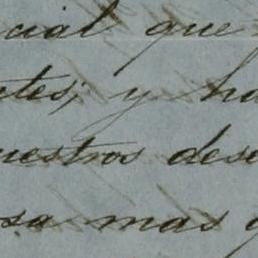 cial que
ntes; y ha
uestros dese
sa mas g